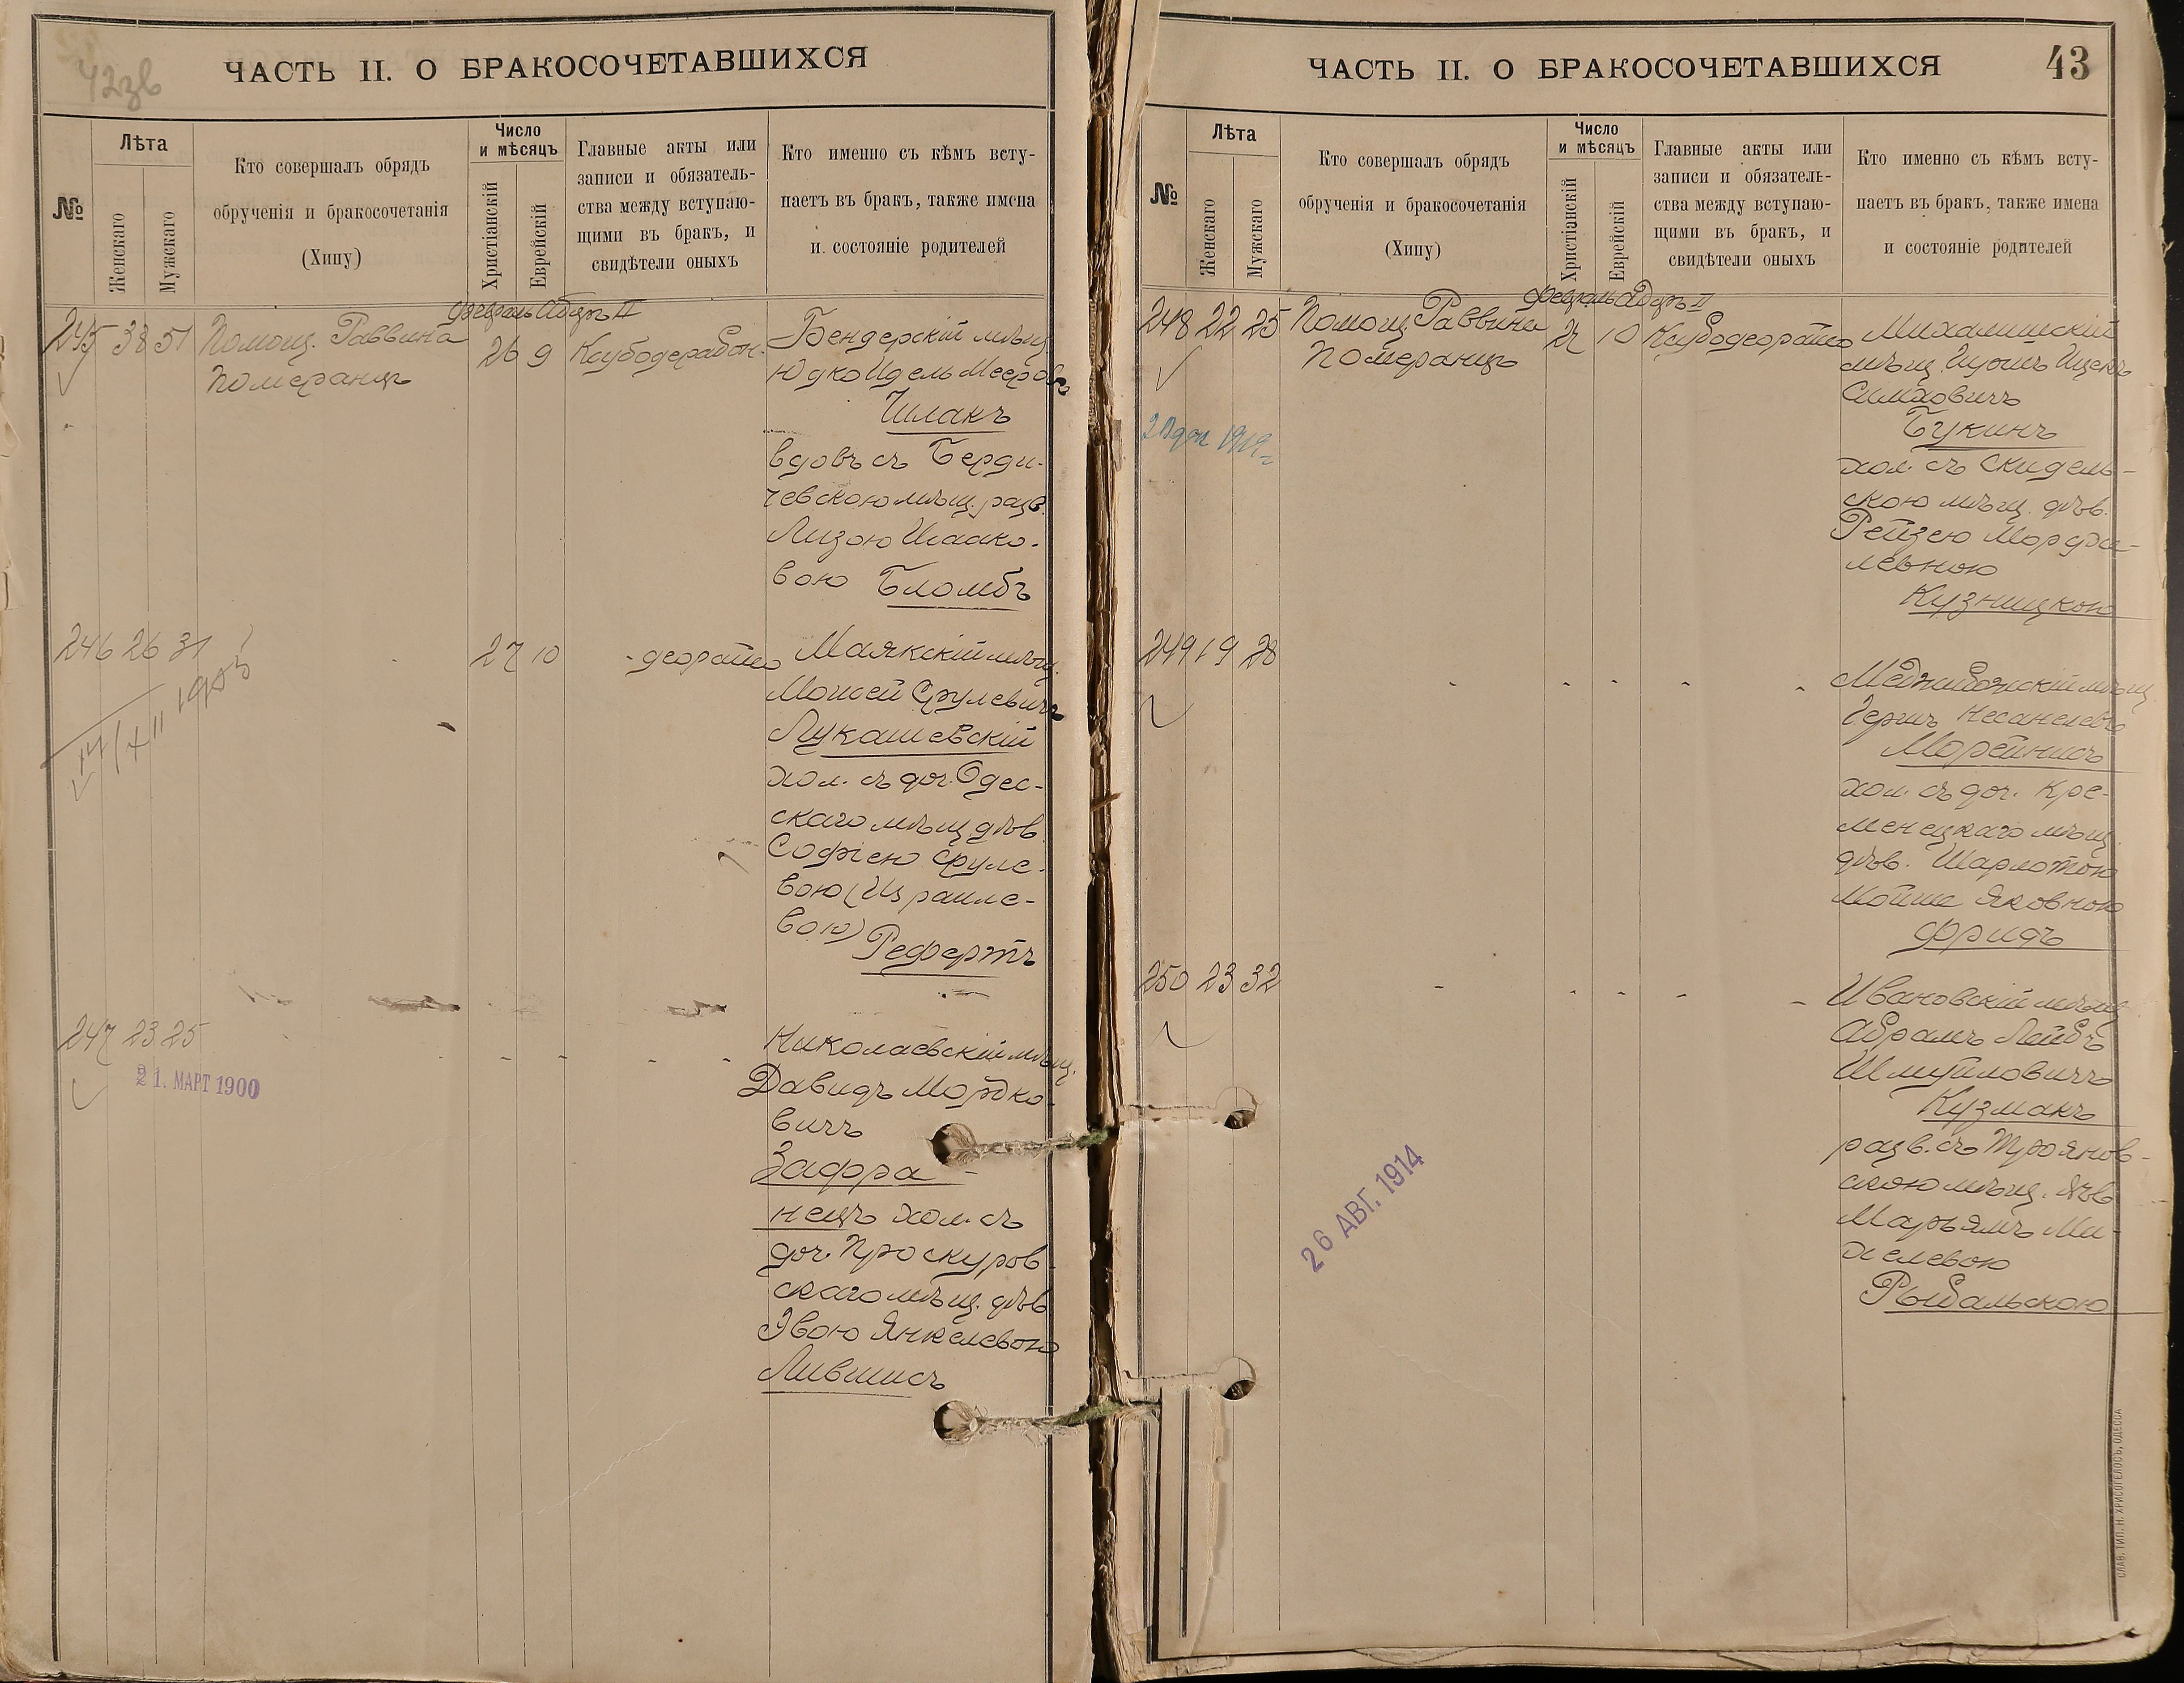 42зв
ЧАСТЬ II. О БРАКОСОЧЕТАВШИХСЯ
№
Лѣта
Женскаго
Мужскаго
Кто совершалъ обрядъ
обрученія и бракосочетанія
(Хипу)
Число
и мѣсяцъ
Христіанскій
Еврейскій
Главные акты или
записи и обязатель-
ства между вступаю-
щими въ бракъ, и
свидѣтели оныхъ
Кто именно съ кѣмъ всту-
паетъ въ бракъ, также имена
и состояніе родителей
Февраль Адаръ II
245 38 51 Помощ. Раввина
Померанцъ
26 9
Бендерскій мѣщ.
Юдко Идель Мееровъ
Шпакъ
вдовъ съ Берди-
чевскою мѣщ. разв.
Лизою Исаако-
вою Бломбъ
246 26 31
1903
27 10
Маякскій мѣщ.
Мошей Срулевичъ
Лукашевскій
хол. съ доч. Одес-
скаго мѣщ. дѣв.
Софіею Сруле-
вою (Израиле-
вою)
Рефертъ
247 23 25
21. МАРТ 1900
Николаевскій мѣщ.
Давидъ Мордко-
вичъ
Зафра-
нецъ хол. съ
доч. Проскуров-
скаго мѣщ. дѣв.
Эвою Янкелевою
Лившисъ
ЧАСТЬ II. О БРАКОСОЧЕТАВШИХСЯ
43
№
Лѣта
Женскаго
Мужскаго
Кто совершалъ обрядъ
обрученія и бракосочетанія
(Хипу)
Число
и мѣсяцъ
Христіанскій
Еврейскій
Главные акты или
записи и обязатель-
ства между вступаю-
щими въ бракъ, и
свидѣтели оныхъ
Кто именно съ кѣмъ всту-
паетъ въ бракъ, также имена
и состояніе родителей
Февраль Адаръ II
248 22 25 Помощ. Раввина
Померанцъ
27 10
Михалишскій
мѣщ. Ицекъ
Симховичъ
Букинъ
хол. съ Скидель-
скою мѣщ. дѣв.
Рейзею Мордхе-
левною
Кузницкою
249 19 28
Меджибожскій мѣщ.
Гершъ Несанелевъ
Морейнисъ
хол. съ доч. Кре-
менецкаго мѣщ.
дѣв. Шарлотою
Мойше Яковною
Фридъ
250 23 32
Ивановскій мѣщ.
Абрамъ Лейбъ
Шмуйловичъ
Кузмакъ
разв. съ ТрояNов-
скою мѣщ. дѣв.
Марьямъ Ми-
хелевою
Рыбальскою
26 АВГ. 1914
СЛАВ. ТИП. Н. ХРИСОГЕЛОСЪ, ОДЕССА